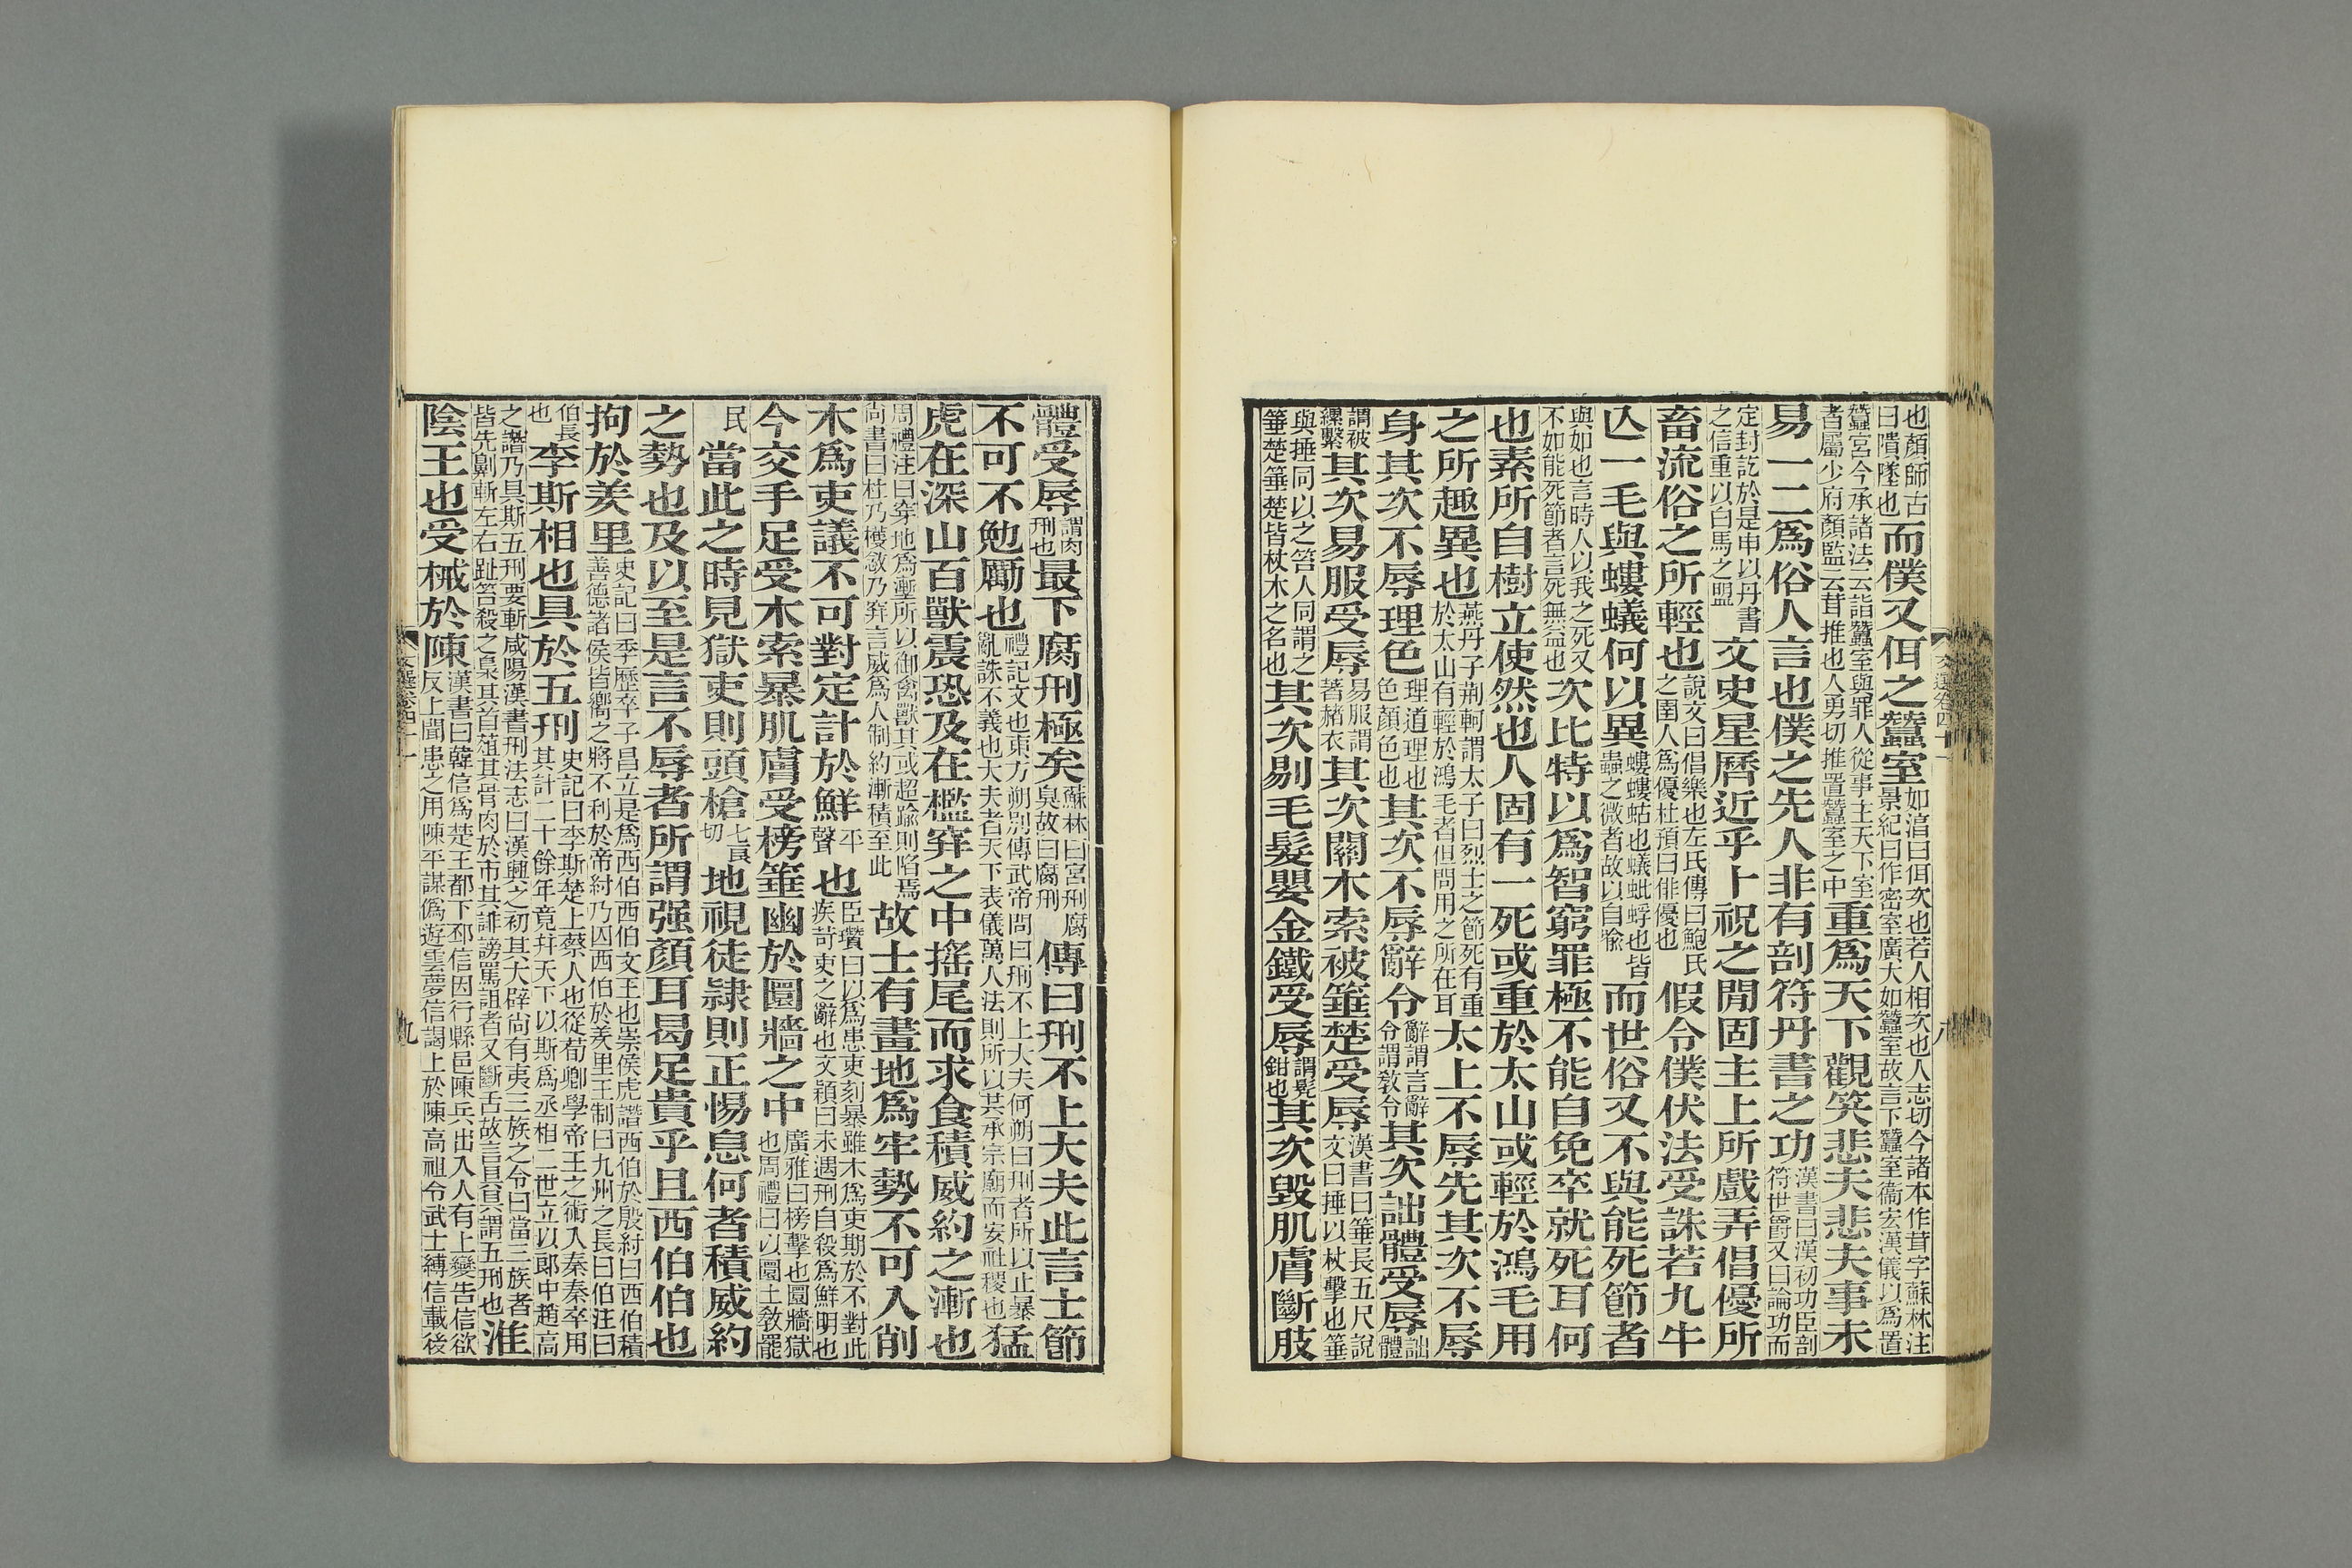 也顏師古曰隤墜也而僕又佴之蠶室如淳曰佴次也若人相次也人志切今諸本作茸字蘇林注景紀曰作密室廣大如蠶室故言下蠶室衞宏漢儀以爲置
蠶宮今承諸法云詣蠶室與罪人從事主天下室者屬少府顏監云茸推也人勇切推置蠶室之中重爲天下觀笑悲夫悲夫事未
易一二爲俗人言也僕之先人非有剖符丹書之功漢書曰漢初功臣剖符世爵又曰論功而
定封訖於是申以丹書之信重以白馬之盟文史星曆近乎卜祝之閒固主上所戲弄倡優所
畜流俗之所輕也說文曰倡樂也左氏傳曰鮑氏之圉人爲優杜預曰俳優也假令僕伏法受誅若九牛
亾一毛與螻蟻何以異螻螻蛄也蟻蚍蜉也皆蟲之微者故以自喻而世俗又不與能死節者
與如也言時人以我之死又不如能死節者言死無益也次比特以爲智窮罪極不能自免卒就死耳何
也素所自樹立使然也人固有一死或重於太山或輕於鴻毛用
之所趣異也燕丹子荆軻謂太子曰烈士之節死有重於太山有輕於鴻毛者但問用之所在耳太上不辱先其次不辱
身其次不辱理色理道理也色顏色也其次不辱辭令辭謂言辭令謂敎令其次詘體受辱詘體
謂被縲繫其次易服受辱易服謂著赭衣其次關木索被箠楚受辱漢書曰箠長五尺說文曰捶以杖擊也箠
與捶同以之笞人同謂之箠楚箠楚皆杖木之名也其次剔毛髮嬰金鐵受辱謂髡鉗也其次毀肌膚斷肢
文選卷四十一
八
體受辱謂肉刑也最下腐刑極矣蘇林曰宮刑腐臭故曰腐刑傳曰刑不上大夫此言士節
不可不勉勵也禮記文也東方朔別傳武帝問曰刑不上大夫何朔曰刑者所以止暴亂誅不義也大夫者天下表儀萬人法則所以共承宗廟而安社稷也猛
虎在深山百獸震恐及在檻穽之中搖尾而求食積威約之漸也
周禮注曰穿地爲塹所以御禽獸其或超踰則陷焉尚書曰杜乃擭敜乃穽言威爲人制約漸積至此故士有畫地爲牢勢不可入削
木爲吏議不可對定計於鮮平聲也臣瓚曰以爲患吏刻暴雖木爲吏期於不對此疾苛吏之辭也文穎曰未遇刑自殺爲鮮明也
今交手足受木索暴肌膚受榜箠幽於圜牆之中廣雅曰榜擊也圜牆獄也周禮曰以圜土敎罷
民當此之時見獄吏則頭槍七良切地視徒隸則正惕息何者積威約
之勢也及以至是言不辱者所謂强顏耳曷足貴乎且西伯伯也
拘於羑里史記曰季歷卒子昌立是爲西伯西伯文王也崇侯虎譖西伯於殷紂曰西伯積善德諸侯皆嚮之將不利於帝紂乃囚西伯於羑里王制曰九州之長曰伯注曰
伯長也李斯相也具於五刑史記曰李斯楚上蔡人也從荀卿學帝王之術入秦秦卒用其計二十餘年竟幷天下以斯爲丞相二世立以郎中趙高
之譖乃具斯五刑要斬咸陽漢書刑法志曰漢興之初其大辟尚有夷三族之令曰當三族者皆先劓斬左右趾笞殺之梟其首葅其骨肉於市其誹謗罵詛者又斷舌故言具爲謂五刑也淮
陰王也受械於陳漢書曰韓信爲楚王都下邳信因行縣邑陳兵出入人有上變告信欲反上聞患之用陳平謀僞遊雲夢信謁上於陳高祖令武士縛信載後
文選卷四十一
九